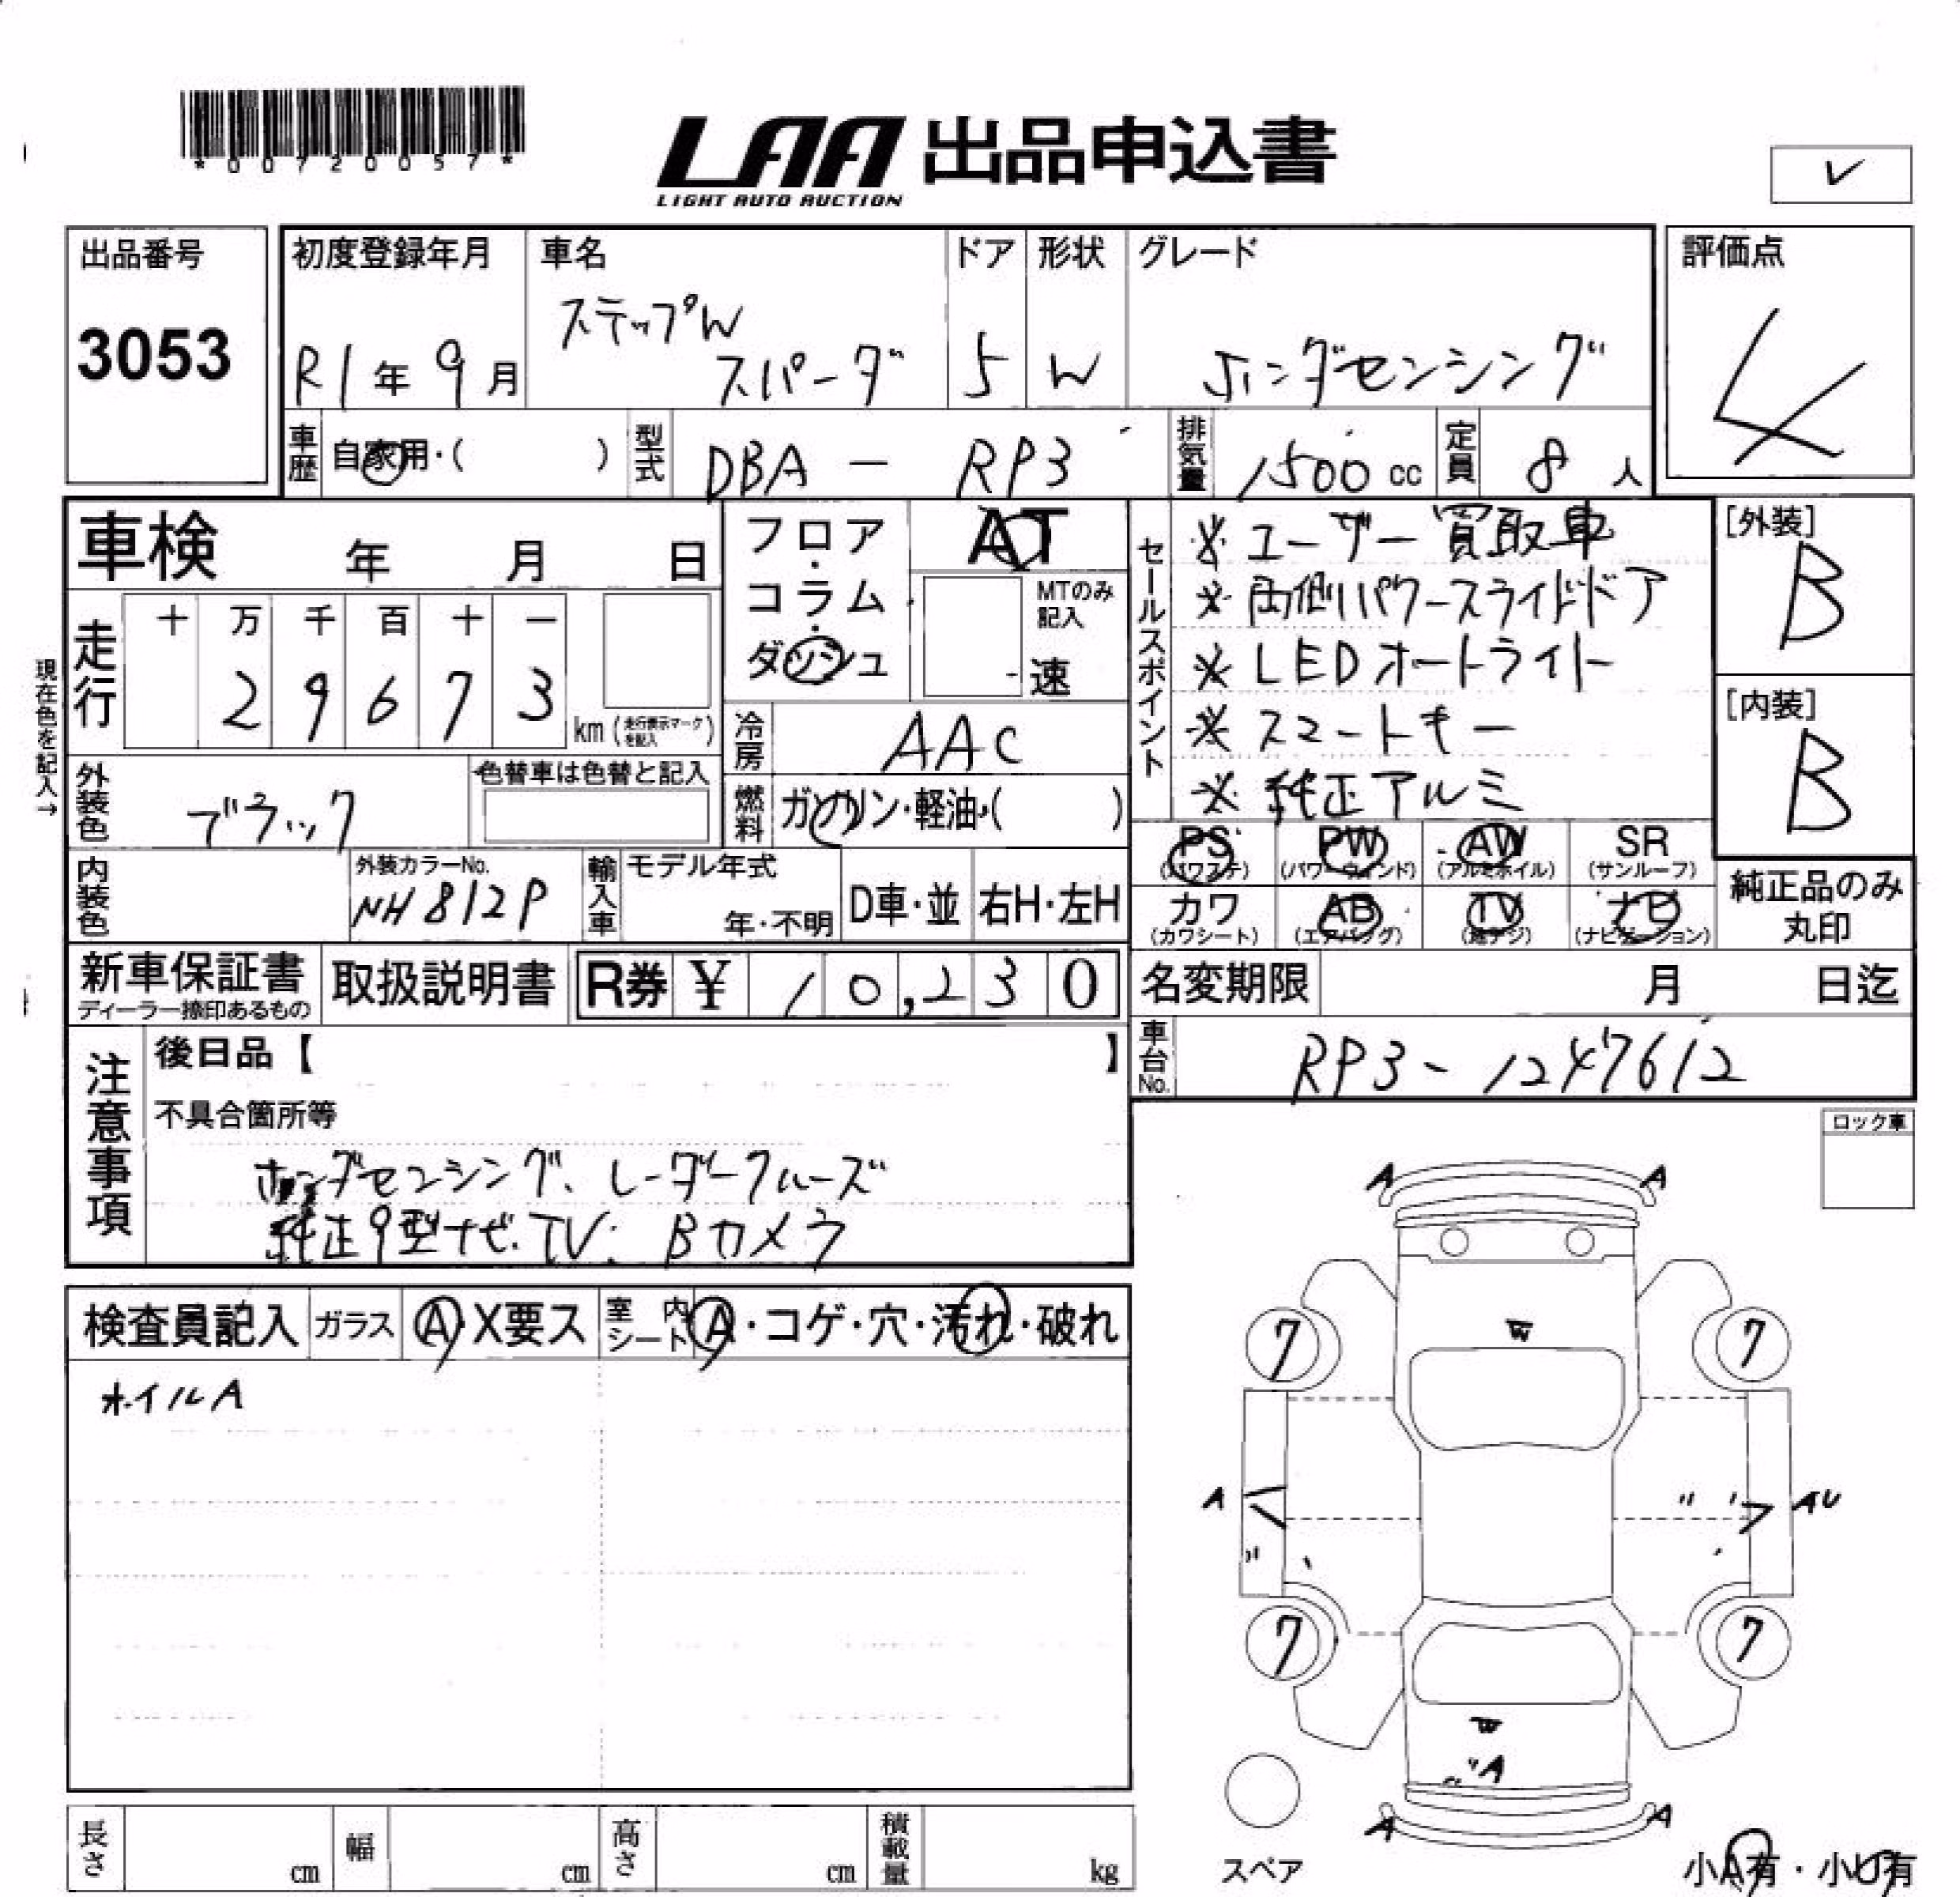 *00720057*
LAA 出品申込書
LIGHT AUTO AUCTION
出品番号
3053
初度登録年月
R1年9月
車名
ステップW
スパーダ
ドア
5
形状
W
グレード
ホンダセンシング
評価点
4
車歴
自家用・( )
型式
DBA - RP3
排気量
1500cc
定員
8人
車検 年 月 日
走行
十 万 千 百 十 一
2 9 6 7 3
km(走行表示マークを記入)
現在色を記入→
フロア・コラム・ダッシュ
AT
MTのみ記入
速
冷房
AAC
燃料
ガソリン・軽油・( )
セールスポイント
※ユーザー買取車
※両側パワースライドドア
※LEDオートライト
※スマートキー
※純正アルミ
[外装]
B
[内装]
B
外装色
ブラック
色替車は色替と記入
内装色
外装カラーNo.
NH812P
輸入車
モデル年式
年・不明
D車・並
右H・左H
PS
(パワステ)
PW
(パワーウィンド)
AW
(アルミホイル)
SR
(サンルーフ)
カワ
(カワシート)
AB
(エアバッグ)
TV
(地デジ)
ナビ
(ナビゲーション)
純正品のみ
丸印
新車保証書
ディーラー捺印あるもの
取扱説明書
R券 ¥ 10,230
名変期限 月 日迄
車台No.
RP3-1247612
注意事項
後日品【 】
不具合箇所等
ホンダセンシング、レーダークルーズ
純正9型ナビ.TV. Bカメラ
ロック車
検査員記入
ガラス
A・X要ス
室内シート
A・コゲ・穴・汚れ・破れ
ホイルA
A A
W
7 7
A
〃
AU
7 7
W
〃A
A A
スペア
小A有・小U有
長さ cm
幅 cm
高さ cm
積載量 kg